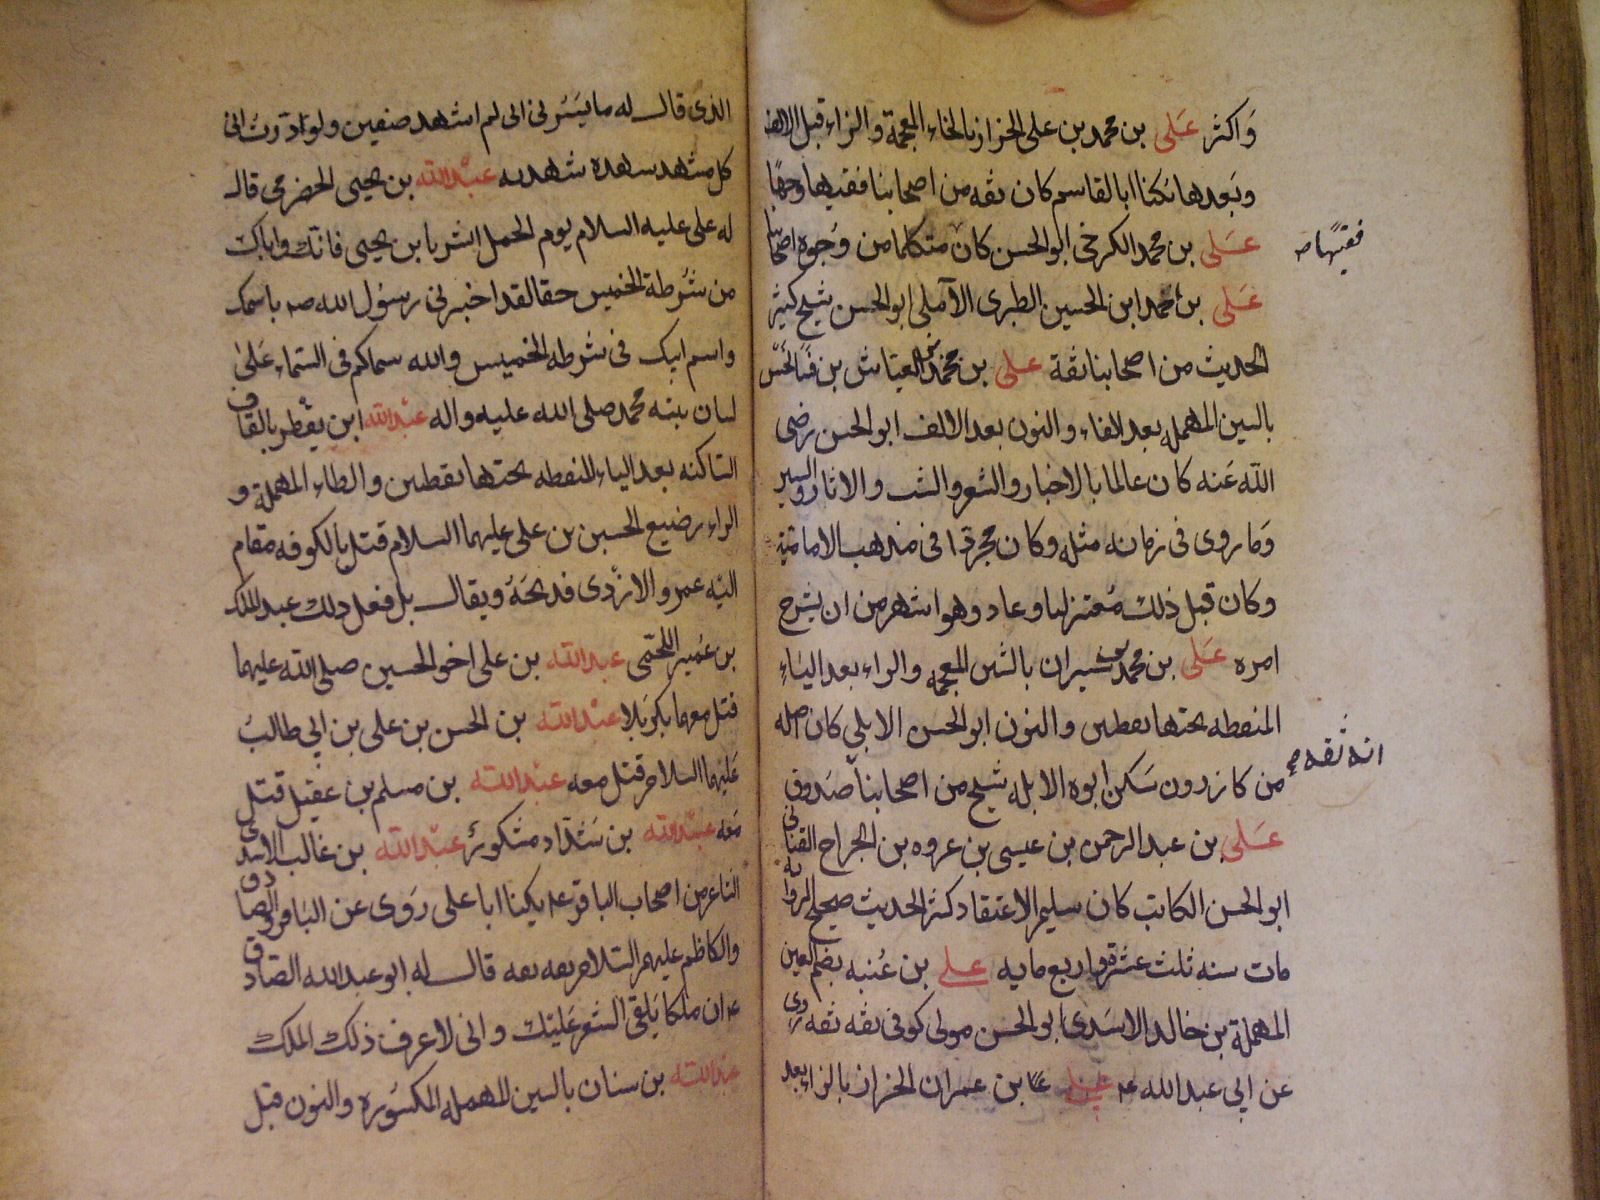 وَاكثر عَلى بن محمد بن على الخزاز بالخاء المعجمة والزاء قبل الالف
وبَعدها يَكنا ابا القاسم كان ثقه من اصحابنا فقيها وجهًا
عَلى بن محمد الكرخى ابو الحسن كان متكلما من وُجوه اصحابنا
فقيهًا صه
عَلى بن احمد ابن الحسين الطبرى الآملى ابو الحسن شيخ كثير
الحديث من اصحابنا ثقة على بن محمد العباس بن فسانجس
بالسين المهمله بعد الفاء والنون بعد الالف ابو الحسن رضى
الله عَنه كان عالما بالاخبار والشعر والنسب والاثار والسير
وَما روى فى زمانه مثله وكان مجردًا فى مذهب الاماميّة
وكان قبل ذلك مُعتزليا وعاد وهو اشهر من ان يشرح
امره عَلى بن محمد بن شيران بالشين المعجمه والراء بعد الياء
المنقطه تحتها نقطين والنون ابو الحسن الابلى كان اصله
من كازرون سَكن ابوه الابله شيخ من اصحابنا صَدوق
انه ثقه
عَلى بن عبد الرحمن بن عيسى بن عروه بن الجراح القنانى
ابو الحسن الكاتب كان سليم الاعتقاد كثير الحديث صحيح الروايه
مات سنه ثلث عشرة واربع مايه على بن عُتبه بضم العين
المهملة بن خالد الاسَدى ابو الحسن مولى كوفى ثقه ثقه روى
عن ابى عبد الله ع على بن عمران الخزاز بالزاء بعد
الذى قال له ما يَسُرنى انى لم اشهد صفين ولوددت انى
كل مشهد شهده شهدته عبد الله بن يحيى الحضرمى قال
له على عليه السلام يوم الجمل ابشر يا بن يحيى فانك واباك
من شُرطة الخميس حقا لقد اخبرنى رسُول الله صه باسمك
واسم ابيك فى شرطه الخميس والله سماكم فى السَّماء عَلىٰ
لسان نبيّه محمد صلى الله عليه واله عبد الله ابن يقطر بالقاف
الساكنه بعد الياء المنقطه تحتها نقطين والطاء المهملة و
الراء رضيع الحسين بن على عليهما السلام قتل بالكوفه فقام
اليه عمرو الازدى فذبحَهُ ويقال بل فعل ذلك عبد الملك
بن عُمير اللخمى عبد الله بن على اخو الحسين صلى الله عليهما
قتل معهما بكربَلا عبد الله بن الحسن بن على بن ابى طالب
عَليهما السلام قتل معه عبد الله بن مسلم بن عقيل قتل
مَعه عبد الله بن شدّاد مشكورٌ عبد الله بن غالب الاسدى
الشاعر من اصحاب الباقر ع يكنا ابا على رَوى عن الباقر والصادق
والكاظم عليهم السلام ثقه ثقه قال له ابو عبد الله الصّادق
ع ان ملكا يَلقى الشعر عَليك وانى لاعرف ذلك الملك
عبد الله بن سنان بالسين المهمله المكسُوره والنون قبل